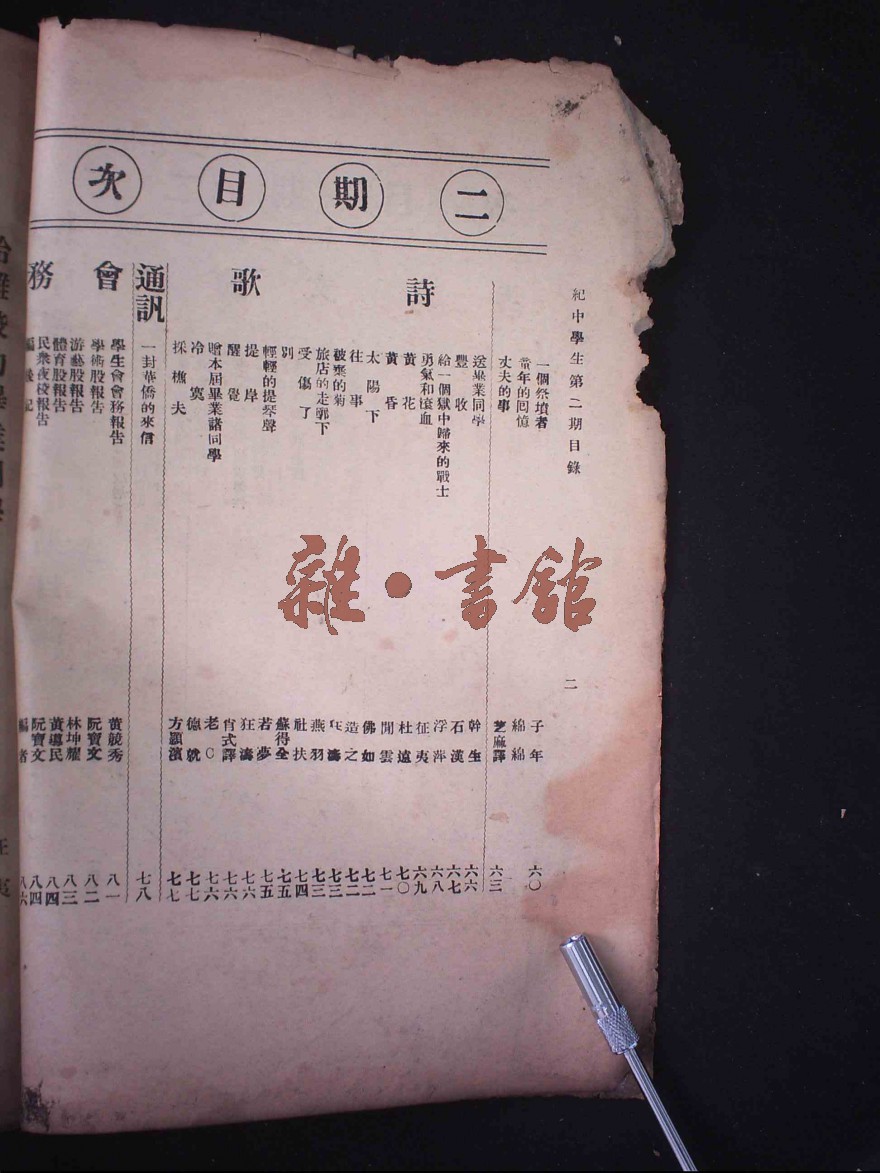 紀中學生第二期目錄
二
二期目次
一個祭墳者 子年 六〇
童年的回憶 綿綿
丈夫的事 芝麻譯 六三
詩歌
送畢業同學 幹生 六六
豐收 石漢 六七
給一個獄中歸來的戰士 浮萍 六八
勇氣和滾血 征夷 六九
黃花 杜遠 七〇
黃昏 閒雲 七一
太陽下 佛如 七二
往事 造之 七二
被棄的菊 濤 七三
旅店的走廓下 燕羽 七三
受傷了 社扶 七四
別 蘇得全 七五
輕輕的提琴聲 若夢 七五
提岸 狂濤 七六
醒覺 肖式譯 七六
贈本屆畢業諸同學 老〇 七六
冷寞 德就 七七
採樵夫 方顥濱 七七
通訊
一封華僑的來信 七八
會務
學生會會務報告 黃競秀 八一
學術股報告 阮寶文 八二
游藝股報告 林坤耀 八三
體育股報告 黃導民 八四
民衆夜校報告 阮寶文 八四
編後記 編者 八六
雜·書館